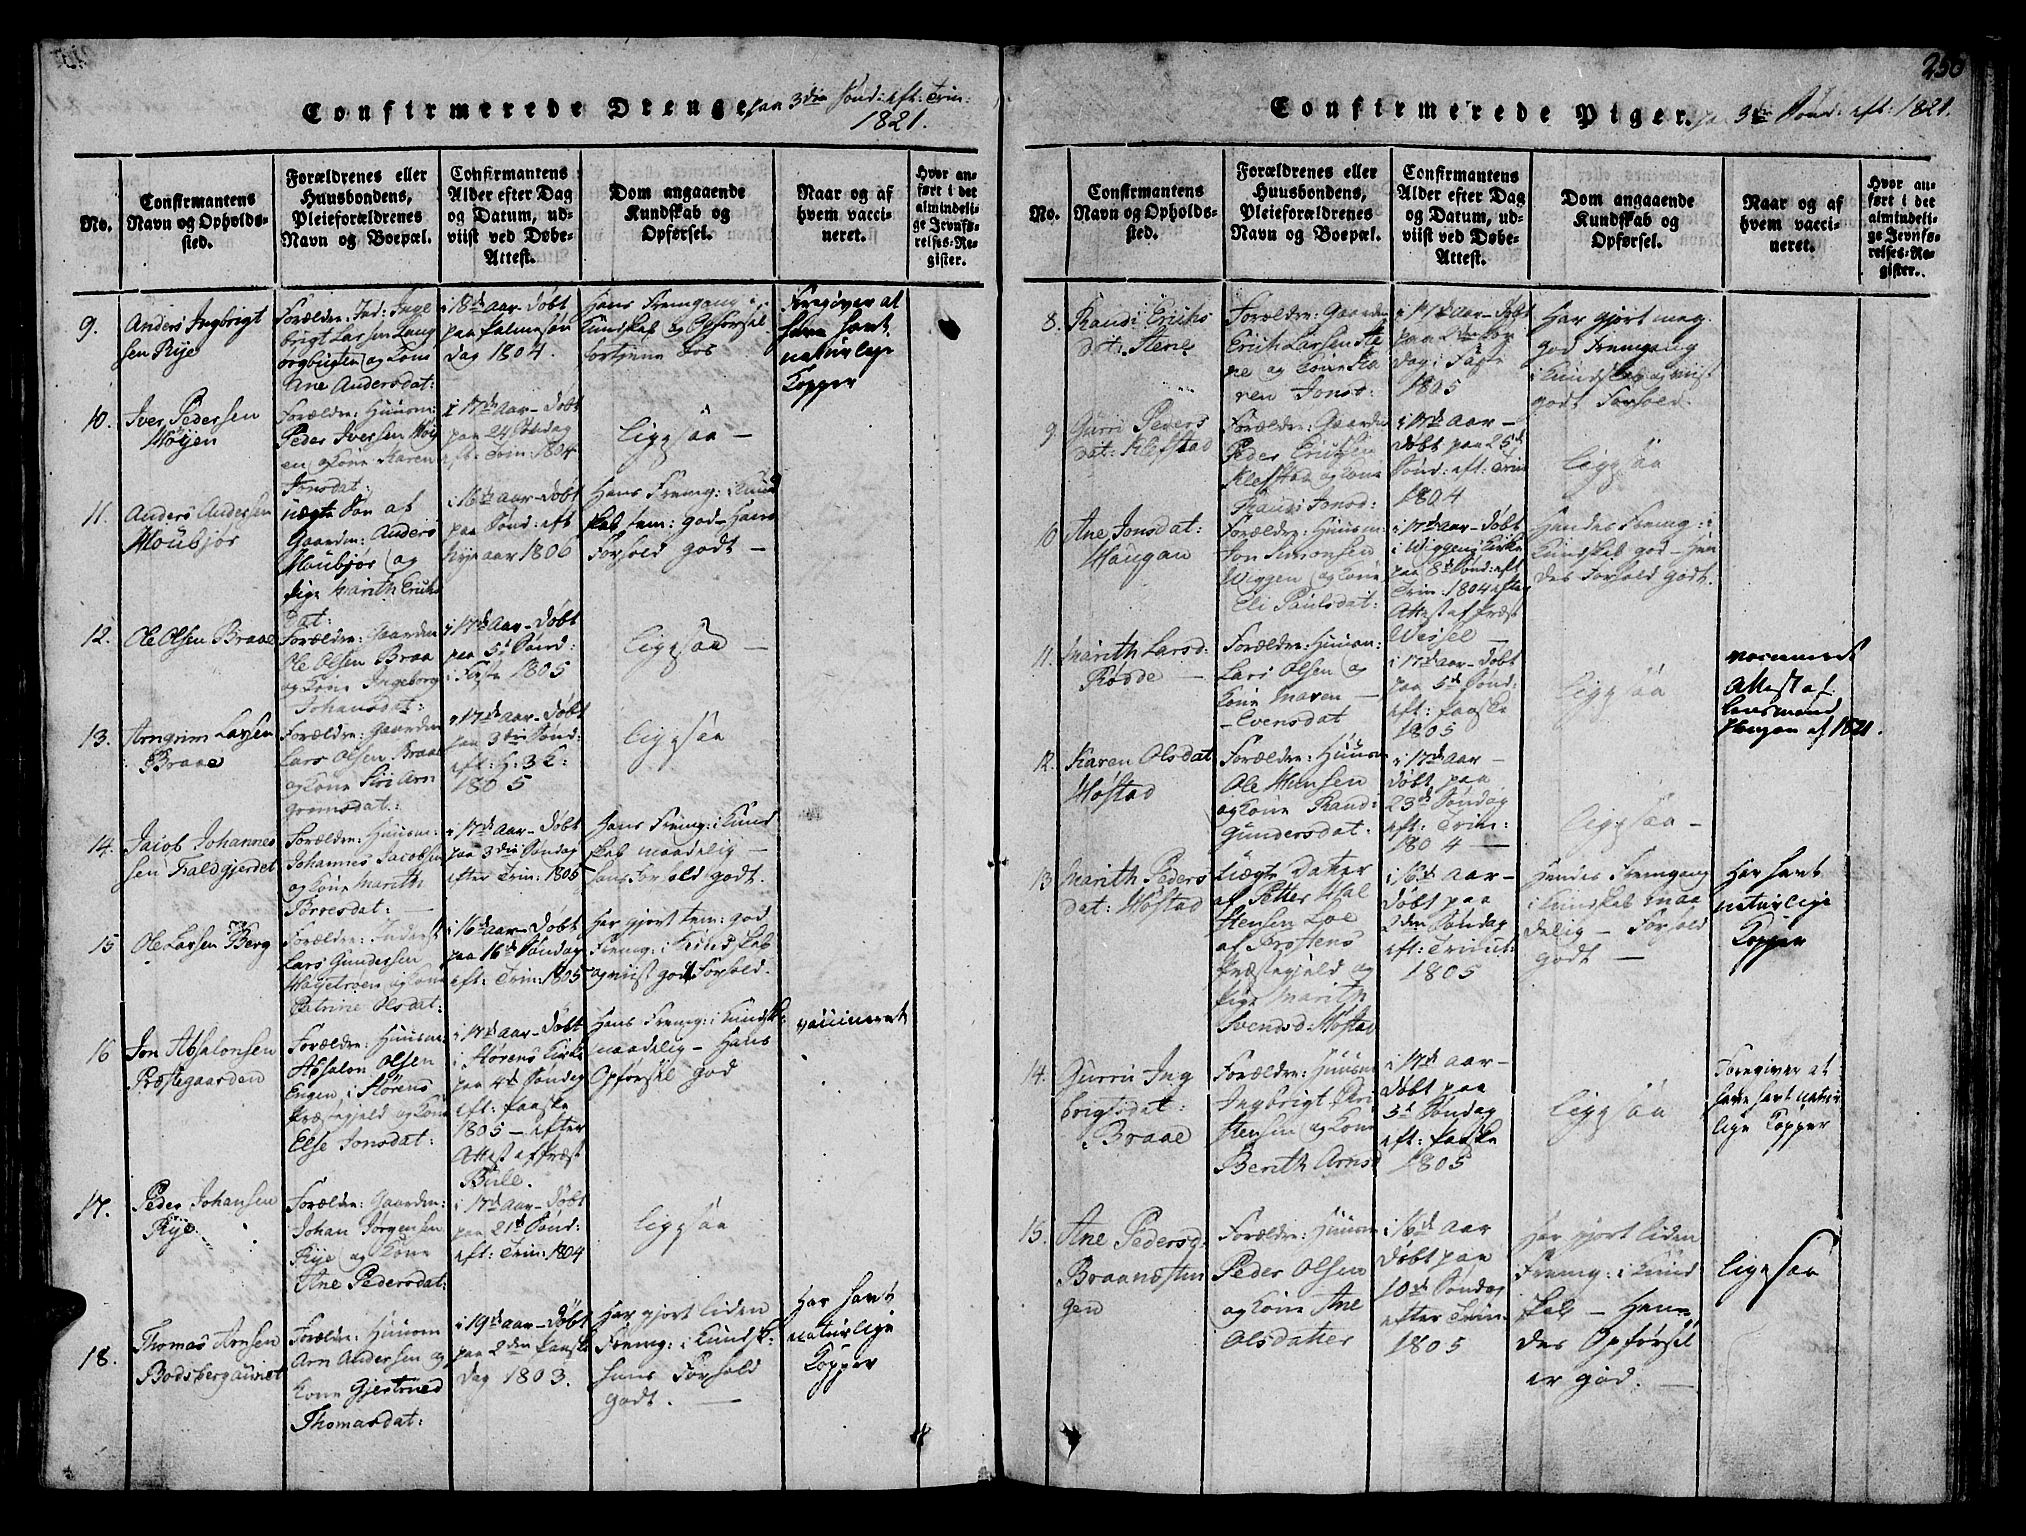 Confirmerede Drenge, paa 3die Sønd: eft: Trin:
1821.
No.
Confirmantens
Navn og Opholds-
sted.
Forældrenes eller
Huusbondens,
Pleieforældrenes
Navn og Boepæl.
Confirmantens
Alder efter Dag
og Datum, ud-
viist ved Døbe-
Attest.
Dom angaaende
Kundskab og
Opførsel.
Naar og af
hvem vacci-
neret.
Hvor an-
ført i det
almindeli-
ge Jevnfø-
relses-Re-
gister.
9.
Anders Ingbrigt
sen Rye
Forældre: Ind: Inge
brigt Larsen
og Kone
Ane Andersdat:
i 18de Aar Døbt
paa Palmesøn
dag 1804.
Hans Fremgang i
Kundskab og Opførsel
Foregiver at
have havt
naturlige
Kopper
10.
Iver Pedersen
Møyen
Forældre: Huusm:
Peder Iversen Møy
en og Kone Karen
Jonsdat:
i 17de Aar - Døbt
paa 24 Søndag
eft: Trin: 1804
Ligesaa -
11.
Anders Andersen
Moubjør
uægte Søn af
Gaardm: Anders
Moubjør og
Pige Marith Erichs
dat:
i 16de Aar - Døbt
paa Sønd: eft
Nyeaar 1806
Hans Fremg: i Kund
skab tem: god - Hans
Forhold godt -
12.
Ole Olsen Braae
Forældre: Gaardm
Ole Olsen Braa
og Kone Ingeborg
Johansdat:
i 17de Aar - Døbt
paa 5te Sønd:
i Faste 1805
Ligesaa -
13.
Arngrim Larsen
Braae
Forældre: Gaardm
Lars Olsen Braae
og Kone Siri Arn
gromsdat:
i 17de Aar - Døbt
paa 3die Sønd:
eft: H: 3 K:
1805
Ligesaa
14.
Jacob Johannes
sen Faldgjerdet
Forældre: Huusm:
Johannes Jacobsen
og Kone Marith
Børresdat:
i 17de Aar - Døbt
paa 3die Søndag
efter Trin: 1805
Hans Fremg: i Kund
skab maadelig -
hans Forhold godt.
15.
Ole Larsen Berg
Forældre: Inderst
Lars Gundersen
og Kone
Catrine Olsdat:
i 16de Aar - Døbt
paa 16de Søndag
eft: Trin: 1805
Har gjort tem: god
Fremg: i Kundskab
og viist godt Forhold.
16
Jon Absalonsen
Præstegaarden
Forældre: Huusm:
Absalon Olsen
Engen i Størens
Præstegjeld og Kone
Else Jonsdat:
i 17de Aar - Døbt
i Størens Kirke
paa 4de Søndag
eft: Paaske
1805 - efter
Attest af Præst
Bule.
Hans Fremg: i Kundsk:
maadelig - Hans
Opførsel god
vaccineret
17.
Peder Johansen
Rye
Forældre: Gaardm:
Johan Jørgensen
Rye og Kone
Ane Pedersdat:
i 17de Aar - Døbt
paa 21de Sønd:
eft: Trin: 1804
Ligesaa
18.
Thomas Arnsen
Bodsbergaunet
Forældre: Huusm
Arn Andersen og
Kone Gjertrued
Thomasdat:
i 19de Aar - Døbt
paa 2den Paaske
dag 1803.
Har gjort liden
Fremg: i Kundsk:
hans Forhold
godt. -
Har havt
naturlige
Kopper
250
Confirmerede Piger, paa 3die Sønd: eft: 1821.
No.
Confirmantens
Navn og Opholds-
sted.
Forældrenes eller
Huusbondens,
Pleieforældrenes
Navn og Boepæl.
Confirmantens
Alder efter Dag
og Datum, ud-
viist ved Døbe-
Attest.
Dom angaaende
Kundskab og
Opførsel.
Naar og af
hvem vacci-
neret.
Hvor an-
ført i det
almindeli-
ge Jevnfø-
relses-Re-
gister.
8.
Randi Erichs
dat: Stene
Forældre: Gaardm
Erich Larsen Ste
ne og Kone Ka
ren Jonsd:
i 17de Aar - Døbt
paa 2den Søn
dag i Faste
1805
Har gjort meg:
god Fremgang
i Kundskab og viist
godt Forhold.
9
Gurri Peders
dat: Klefstad
Forældre: Gaardm
Peder Erichsen
Klefstad og Kone
Randi Jonsd:
i 17de Aar -
Døbt paa 25de
Sønd: eft: Trin
1804
Ligesaa
10
Ane Jonsdat:
Haugan
Forældre: Huusm:
Jon Simonsen
Wiggen og Kone
Eli Paulsdat:
i 17de Aar - Døbt
i Wiggens Kirke
paa 8de Sønd: eft
Trin: 1804 efter
Attest af Præst
Wessel -
Hendes Fremg: i
Kundskab god - Hen
des Forhold godt.
11.
Marith Larsd:
Røsde -
Forældre: Huusm:
Lars Olsen og
Kone Maren -
Evensdat
i 17de Aar - Døbt
paa 5te Sønd:
eft: Paaske
1805
Ligesaa
vaccineret
Attest af
Lensmand
Haugan af 1821.
12.
Karen Olsdat
Høstad
Forældre: Huusm
Ole Hansen
og Kone Rand:
Gundersdat:
i 17de Aar -
Døbt paa
23de Søndag
eft: Trin:
1804 -
Ligesaa -
13
Marith Peders
dat: Høstad
Uægte Datter
af Petter Hal
stensen Loe
af Børstens
Præstegjeld og
Pige Marith
Svendsd: Høstad
i 16de Aar -
Døbt paa
2den Søndag
eft: Trinit:
1805
Hendes Fremgang
i Kundskab maa
delig - Forhold
godt -
Har havt
naturlige
Kopper
14.
Gurru Ing
brigtsdat:
Braae
Forældre: Huusm
Ingbrigt Chri
stensen og Kone
Berith Arnsd
i 17de Aar -
Døbt paa
5te Søndag
eft: Paaske
1805
Ligesaa
Foregiver at
have havt natur
lige Kopper
15.
Ane Pedersd:
Braaenssten
gen
Forældre: Huusm
Peder Olsen
og Kone Ane
Olsdatter
i 16de Aar
Døbt paa
10de Søndag
efter Trin:
1805
Har gjort liden
Fremg: i Kund
skab - Hen-
des Opførsel
er god. -
Ligesaa